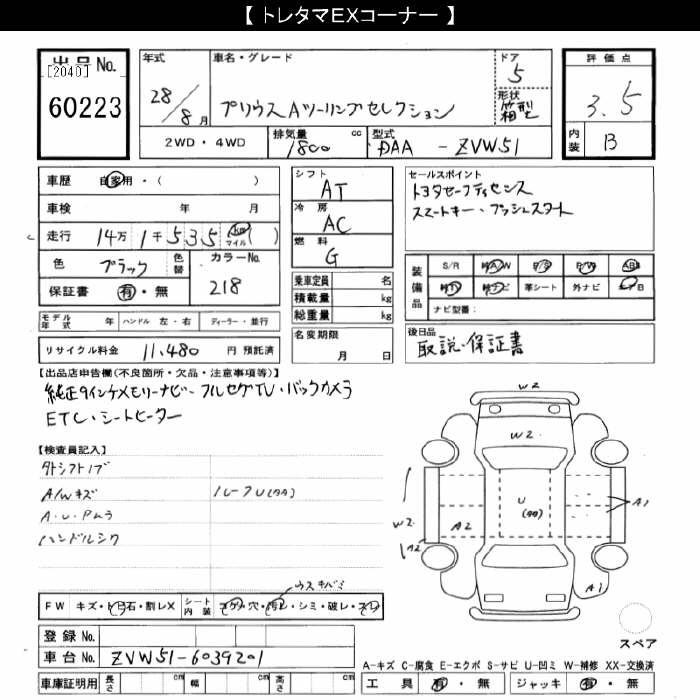 【 トレタマEXコーナー 】
出品 No. [2040]
60223
年式 28/8月
車名・グレード プリウス Aツーリングセレクション
ドア 5
形状 箱型
評価点 3.5
内装 B
2WD・4WD 排気量 1800 cc 型式 DAA - ZVW51
車歴 自家用・( )
車検 年 月
走行 14万 1千 535 km マイル ( )
色 ブラック 色替 カラーNo. 218
保証書 有・無
モデル年式 年 ハンドル 左・右 ディーラー・並行
リサイクル料金 11,480 円 預託済
シフト AT
冷房 AC
燃料 G
乗車定員 名
積載量 kg
総重量 kg
名変期限 月 日
セールスポイント
トヨタセーフティセンス
スマートキー・プッシュスタート
装備品 S/R A/W P/S P/W AB
ナビ 革シート 外ナビ
ナビ型番:
後日品
取説・保証書
【出品店申告欄(不良箇所・欠品・注意事項等)】
純正9インチメモリーナビ・フルセグTV・バックカメラ
ETC・シートヒーター
【検査員記入】
タトシフトノブ
A/Wキズ
A・U・Pムラ
ハンドルシワ
ルーフU(AA)
ウスキバミ
FW キズ・トビ石・割レX シート内装 コゲ・穴・汚レ・シミ・破レ・スレ
登録 No.
車台 No. ZVW51-6039201
車庫証明用 長さ cm 幅 cm 高さ cm
W2
W2
U
(AA)
A2
W2
A2
A1
A1
スペア
A-キズ C-腐食 E-エクボ S-サビ U-凹ミ W-補修 XX-交換済
工具 有・無 ジャッキ 有・無